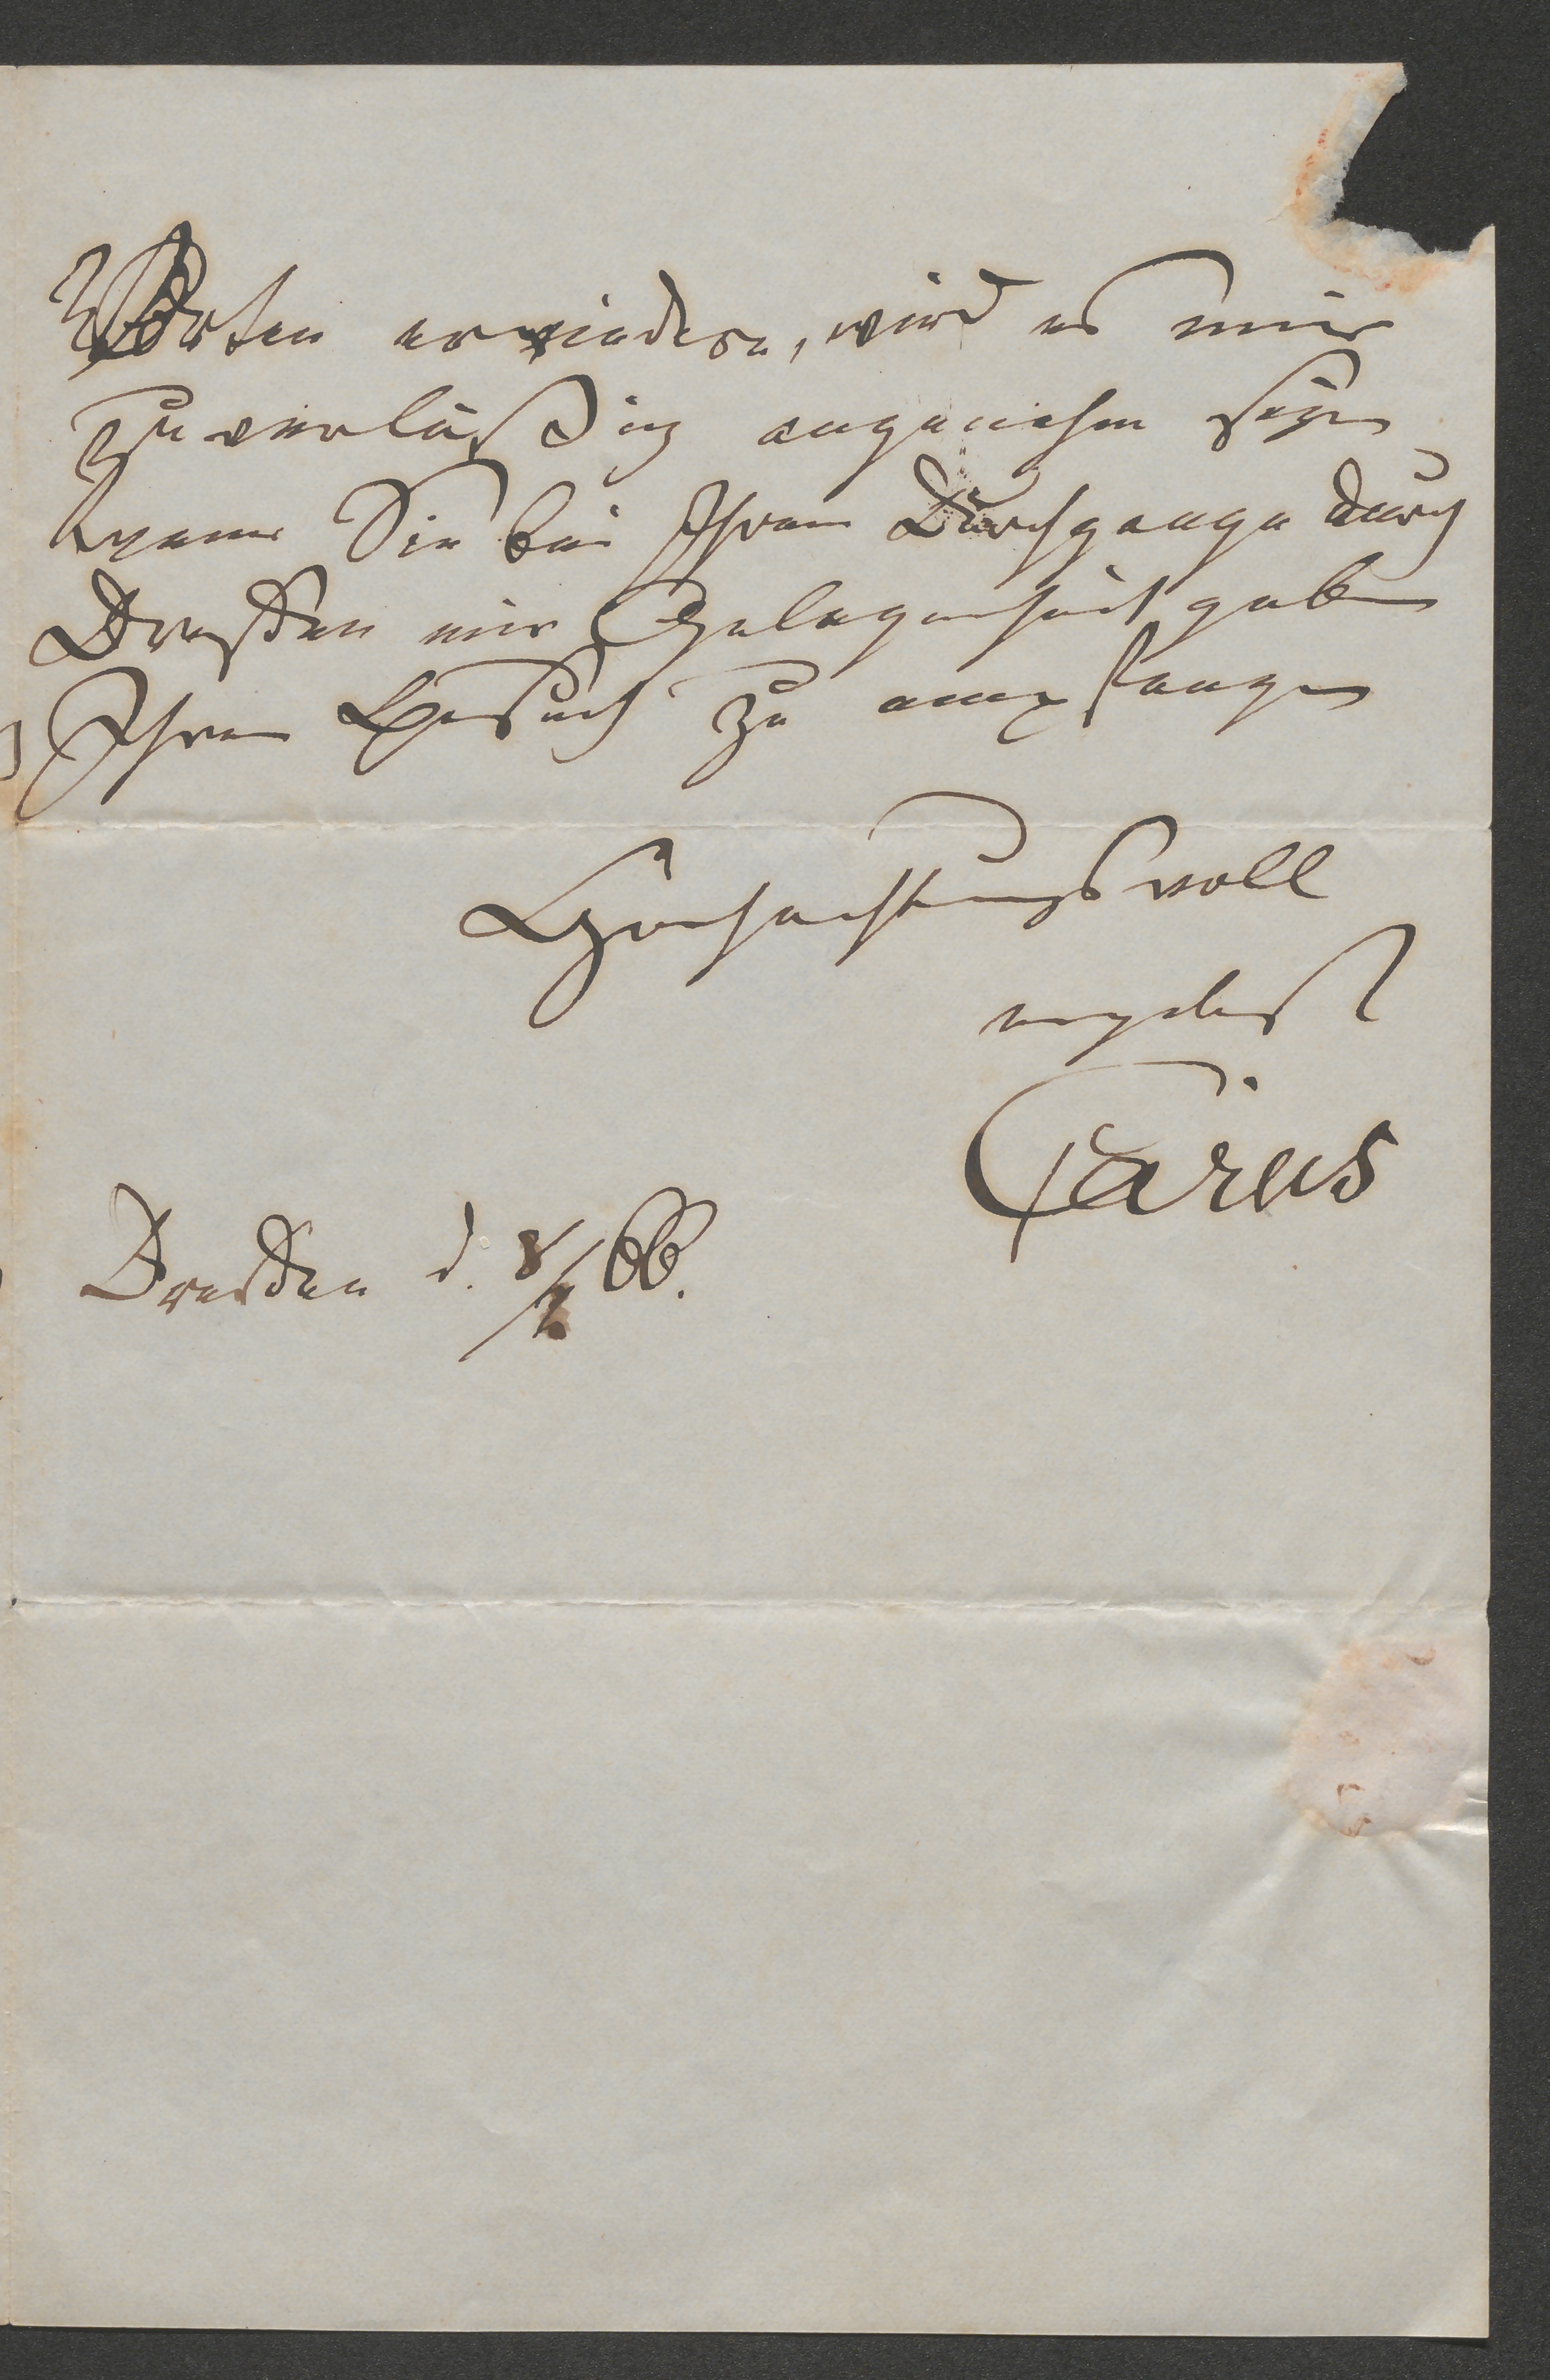 Worten erwiedern, wird es mir
zuverläßig angenehm seyn
wenn Sie bei Ihrem Durchgange durch
Dresden mir Gelegenheit geben
Ihren Besuch zu empfangen
Hochachtungsvoll
ergebenst
Carus
Dresden d. 8/ 66.